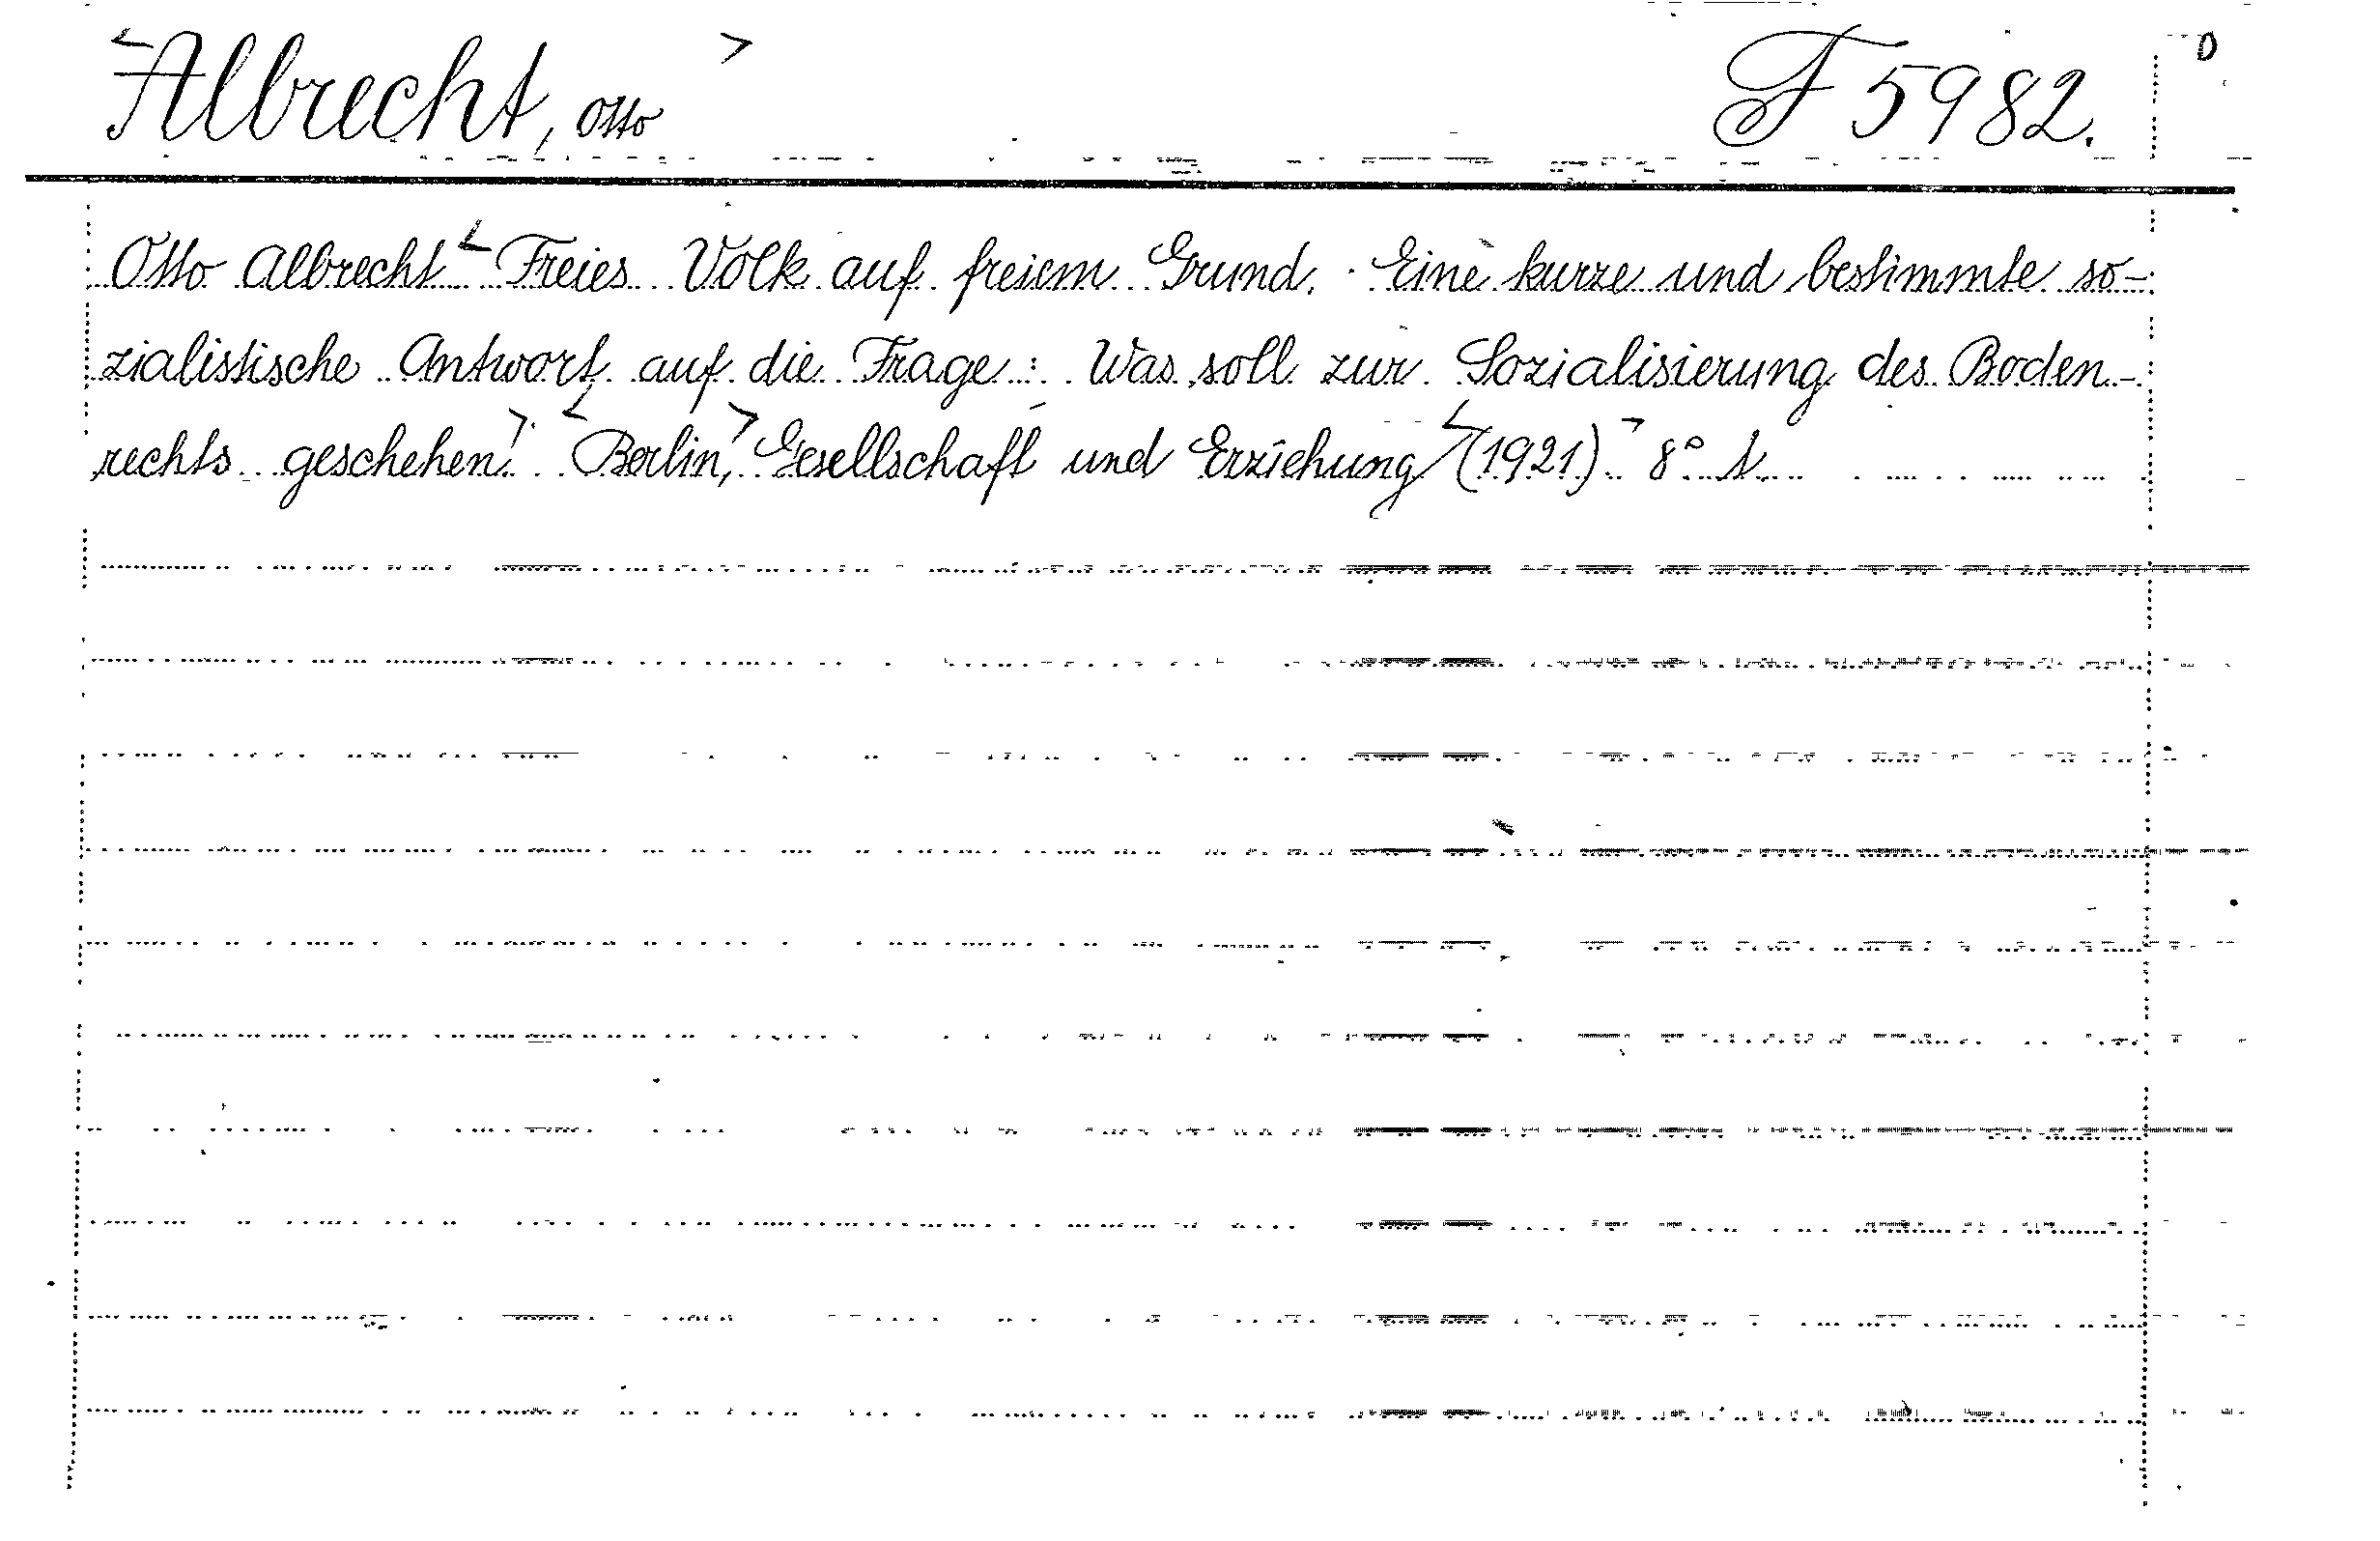 Albrecht, Otto F 5982.
Otto Albrecht Freies Volk auf freiem Grund. Eine kurze und bestimmte so-
zialistische Antwort auf die Frage: Was soll zur Sozialisierung des Boden-
rechts geschehen? Berlin, Gesellschaft und Erziehung (1921) 8°